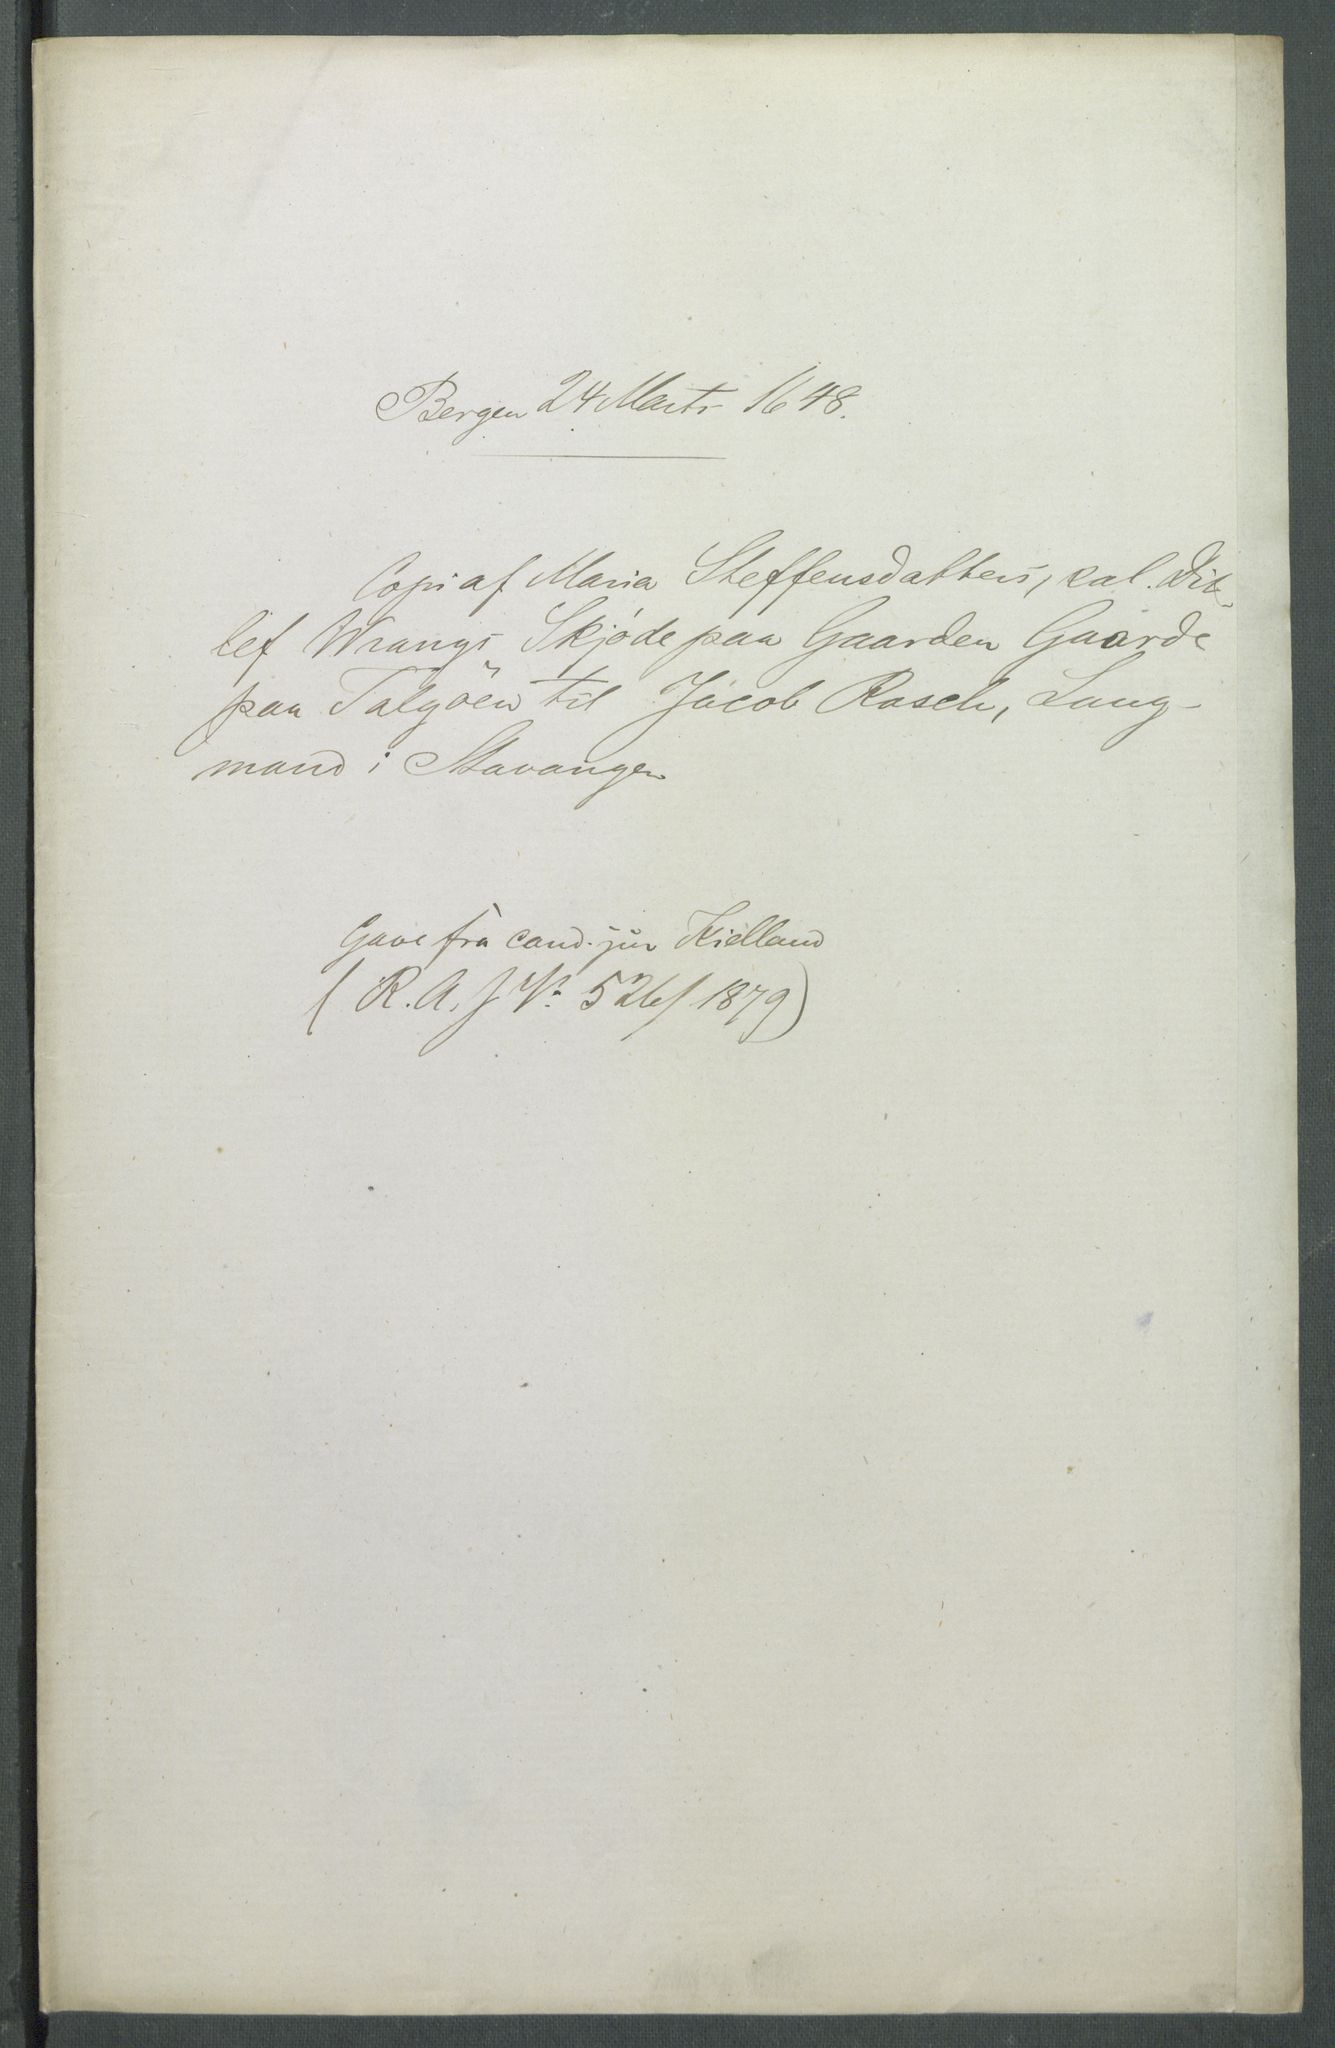 Bergen 24 Marts 1648.
Copi af Maria Steffensdatters, sal. Dit-
lef Wrangs Skjøde paa Gaarden Gaarde
paa Talgöen til Jacob Rasch, Laug-
mand i Stavanger
Gave fra cand. jur Kielland
(R. A. J No 526/1879)